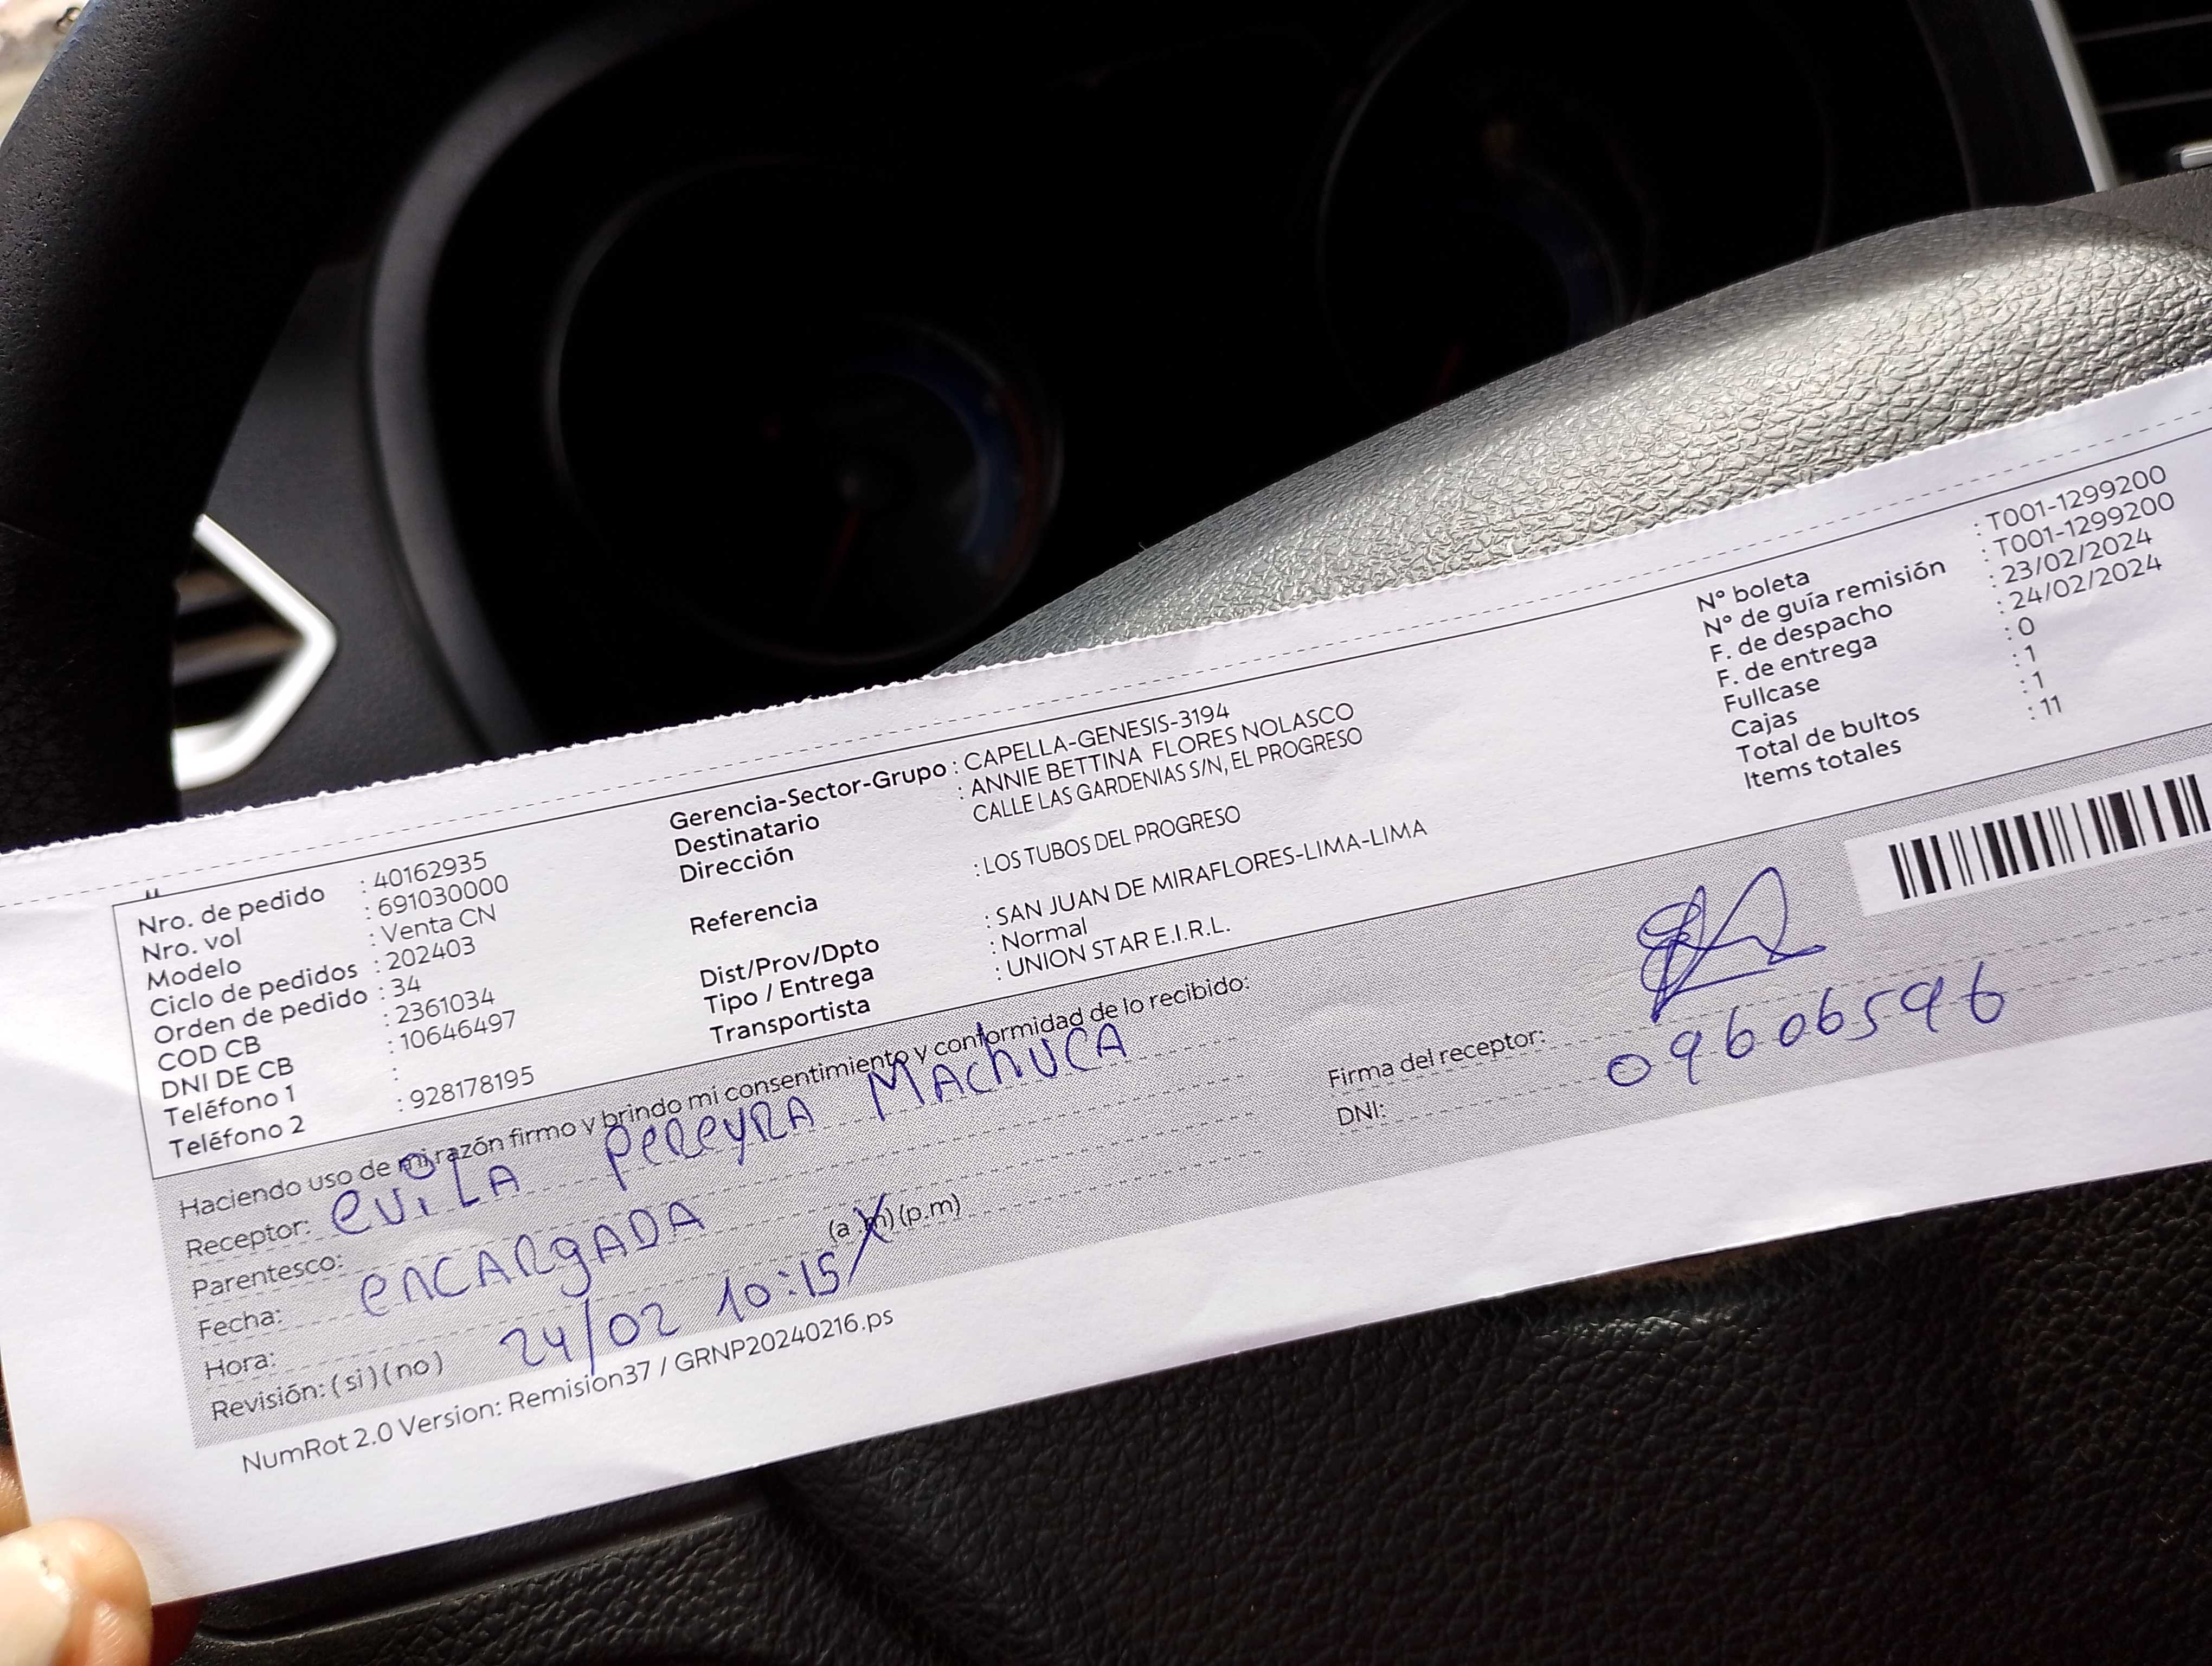 Nro. de pedido : 40162935
Nro. vol : 691030000
Modelo : Venta CN
Ciclo de pedidos : 202403
Orden de pedido : 34
COD CB : 2361034
DNI DE CB : 10646497
Teléfono 1 :
Teléfono 2 : 928178195
Gerencia-Sector-Grupo : CAPELLA-GENESIS-3194
Destinatario : ANNIE BETTINA FLORES NOLASCO
Dirección CALLE LAS GARDENIAS S/N, EL PROGRESO
Referencia : LOS TUBOS DEL PROGRESO
Dist/Prov/Dpto : SAN JUAN DE MIRAFLORES-LIMA-LIMA
Tipo / Entrega : Normal
Transportista : UNION STAR E.I.R.L.
N° boleta : T001-1299200
N° de guía remisión : T001-1299200
F. de despacho : 23/02/2024
F. de entrega : 24/02/2024
Fullcase : 0
Cajas : 1
Total de bultos : 1
Items totales : 11
Haciendo uso de mi razón firmo y brindo mi consentimiento y conformidad de lo recibido:
Receptor: eviLA PeReyRA MAChUCA
Parentesco: enCARgADA
Fecha: 24/02
Hora: 10:15 (a.m) (p.m)
Revisión: (si) (no)
Firma del receptor:
DNI: 09606596
NumRot 2.0 Version: Remision37 / GRNP20240216.ps